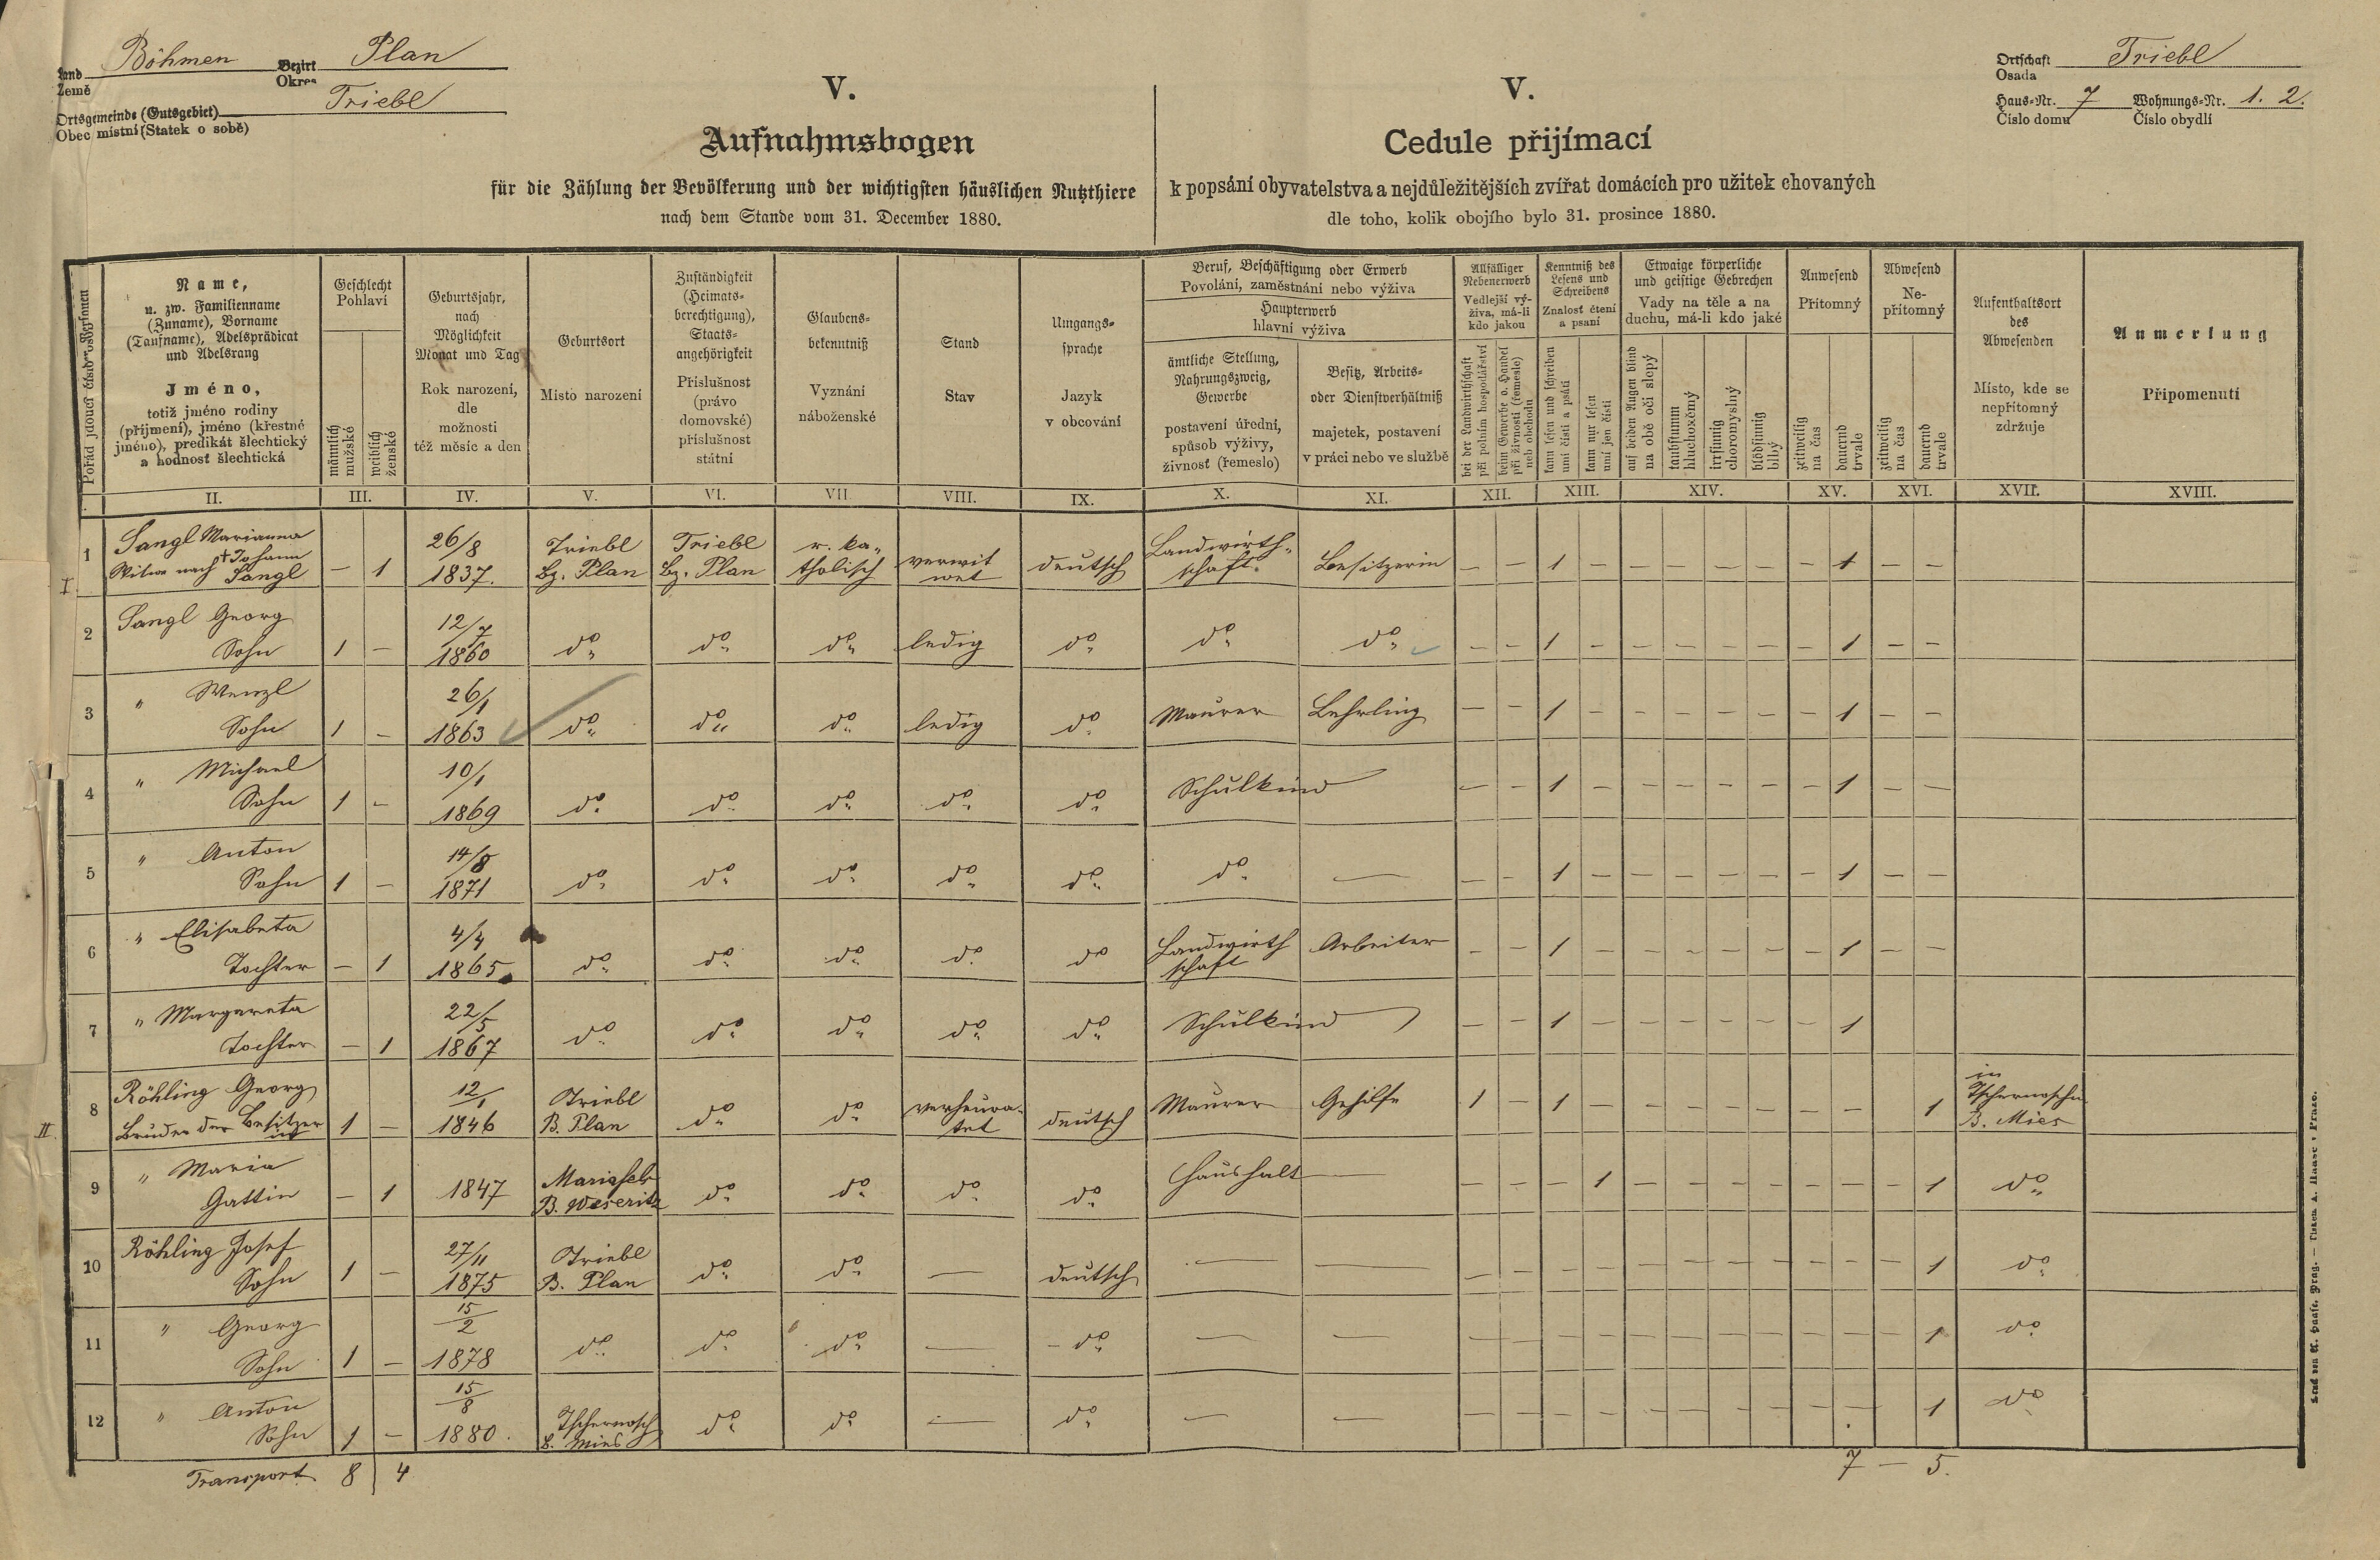 Land Böhmen Bezirk Plan
Země Okres
Ortsgemeinde (Gutsgebiet) Triebl
Obec místní (Statek o sobě)
Ortschaft Triebl
Osada
Haus-Nr. 7 Wohnungs-Nr. 1. 2.
Číslo domu Číslo obydlí
V.
Aufnahmsbogen
für die Zählung der Bevölkerung und der wichtigsten häuslichen Nutzthiere
nach dem Stande vom 31. December 1880.
V.
Cedule přijímací
k popsání obyvatelstva a nejdůležitějších zvířat domácích pro užitek chovaných
dle toho, kolik obojího bylo 31. prosince 1880.
Name,
u. zw. Familienname
(Zuname), Vorname
(Taufname), Adelsprädicat
und Adelsrang
Jméno,
totiž jméno rodiny
(příjmení), jméno (křestné
jméno), predikát šlechtický
a hodnosť šlechtická
Geschlecht
Pohlaví
männlich
mužské
weiblich
ženské
Geburtsjahr,
nach
Möglichkeit
Monat und Tag
Rok narození,
dle
možnosti
též měsíc a den
Geburtsort
Místo narození
Zuständigkeit
(Heimats-
berechtigung),
Staats-
angehörigkeit
Příslušnost
(právo
domovské)
příslušnost
státní
Glaubens-
bekenntniß
Vyznání
náboženské
Stand
Stav
Umgangs-
sprache
Jazyk
v obcování
Beruf, Beschäftigung oder Erwerb
Povolání, zaměstnání nebo výživa
Haupterwerb
hlavní výživa
ämtliche Stellung,
Nahrungszweig,
Gewerbe
postavení úřední,
spůsob výživy,
živnosť (řemeslo)
Besitz, Arbeits-
oder Dienstverhältniß
majetek, postavení
v práci nebo ve službě
Allfälliger
Nebenerwerb
Vedlejší vý-
živa, má-li
kdo jakou
bei der Landwirthschaft
při polním hospodářství
beim Gewerbe o. Handel
při živnosti (řemeslo)
neb obchodu
Kenntniß des
Lesens und
Schreibens
Znalosť čtení
a psaní
kann lesen und schreiben
umí čísti a psáti
kann nur lesen
umí jen čísti
Etwaige körperliche
und geistige Gebrechen
Vady na těle a na
duchu, má-li kdo jaké
auf beiden Augen blind
na obě oči slepý
taubstumm
hluchoněmý
irrsinnig
choromyslný
blödsinnig
blbý
Anwesend
Přítomný
zeitweilig
na čas
dauernd
trvale
Abwesend
Ne-
přítomný
zeitweilig
na čas
dauernd
trvale
Aufenthaltsort
des
Abwesenden
Místo, kde se
nepřítomný
zdržuje
Anmerkung
Připomenutí
II. III. IV. V. VI. VII. VIII. IX. X. XI. XII. XIII. XIV. XV. XVI. XVII. XVIII.
I.
1 Sangl Marianna
Witwe nach † Johann
Sangl — 1 26/8 1837. Triebl Bz. Plan Triebl Bz. Plan r. ka-tholisch verwit wet deutsch Landwirth-schaft. Besitzerin — — 1 — — — — — — 1 — —
2 Sangl Georg
Sohn 1 — 12/7 1860 do do do ledig do do do — — 1 — — — — — — 1 — —
3 " Wenzl
Sohn 1 — 26/1 1863 do do do ledig do Maurer Lehrling — — 1 — — — — — — 1 — —
4 " Michael
Sohn 1 — 10/1 1869 do do do do do Schulkind — — 1 — — — — — — 1 — —
5 " Anton
Sohn 1 — 14/8 1871 do do do do do do — — — 1 — — — — — — 1 — —
6 " Elisabeta
Tochter — 1 4/4 1865 do do do do do Landwirth schaft Arbeiter — — 1 — — — — — — 1 — —
7 " Margareta
Tochter — 1 22/5 1867 do do do do do Schulkind — — 1 — — — — — — 1
II.
8 Röhling Georg
Bruder der Besitzer
in 1 — 12/1 1846 Triebl B. Plan do do verheura-tet deutsch Maurer Gehilfe 1 — 1 — — — — — — — 1 in Tschernoschin B. Mies
9 " Maria
Gattin — 1 1847 Mariafels B. Weseritz do do do do Haushalt — — — — 1 — — — — — — — 1 do
10 Röhling Josef
Sohn 1 — 27/11 1875 Triebl B. Plan do do — deutsch — — — — — — — — — — — — — 1 do
11 " Georg
Sohn 1 — 15/2 1878 do do do — do — — — — — — — — — — — — — 1 do
12 " Anton
Sohn 1 — 15/8 1880. Tschernosch B. Mies do do — do — — — — — — — — — — — — — 1 do
Transport 8 4 7 — 5.